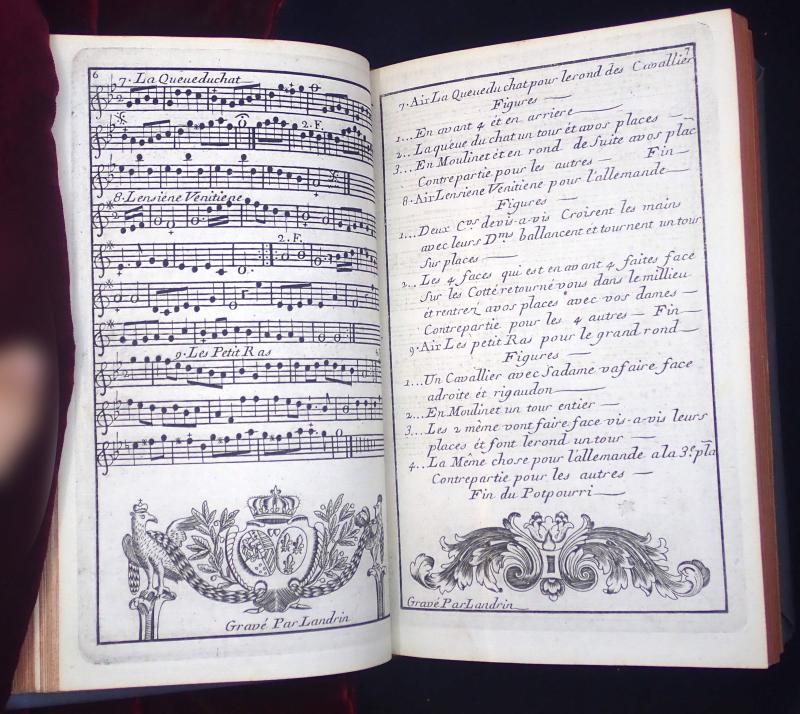 6
7. La Queue du chat
2
2. F.
8. Lensiene Vénitiene
2. F.
9. Les Petit Ras
Gravé Par Landrin
7
7. Air La Queue du chat pour le rond des Cavallier
Figures
1... En avant 4 et en arriere
2... La queue du chat un tour et a vos places
3... En Moulinet et en rond de Suite a vos plac
Contrepartie pour les autres Fin
8. Air Lensiene Vénitiene pour l'allemande
Figures
1... Deux C.ers de vis-a-vis Croisent les mains
avec leurs D.mes ballancent et tournent un tour
Sur places
2... Les 4 faces qui est en avant 4 faites face
Sur les Cotté retourné vous dans le millieu
et rentrez a vos places avec vos dames
Contrepartie pour les 4 autres Fin
9. Air Les petit Ras pour le grand rond
Figures
1... Un Cavallier avec Sa dame va faire face
a droite et rigaudon
2... En Moulinet un tour entier
3... Les 2 même vont faire face vis-a-vis leurs
places et font le rond un tour
4... La Même chose pour l'allemande a la 3.e pla
Contrepartie pour les autres
Fin du Potpourri
Gravé Par Landrin